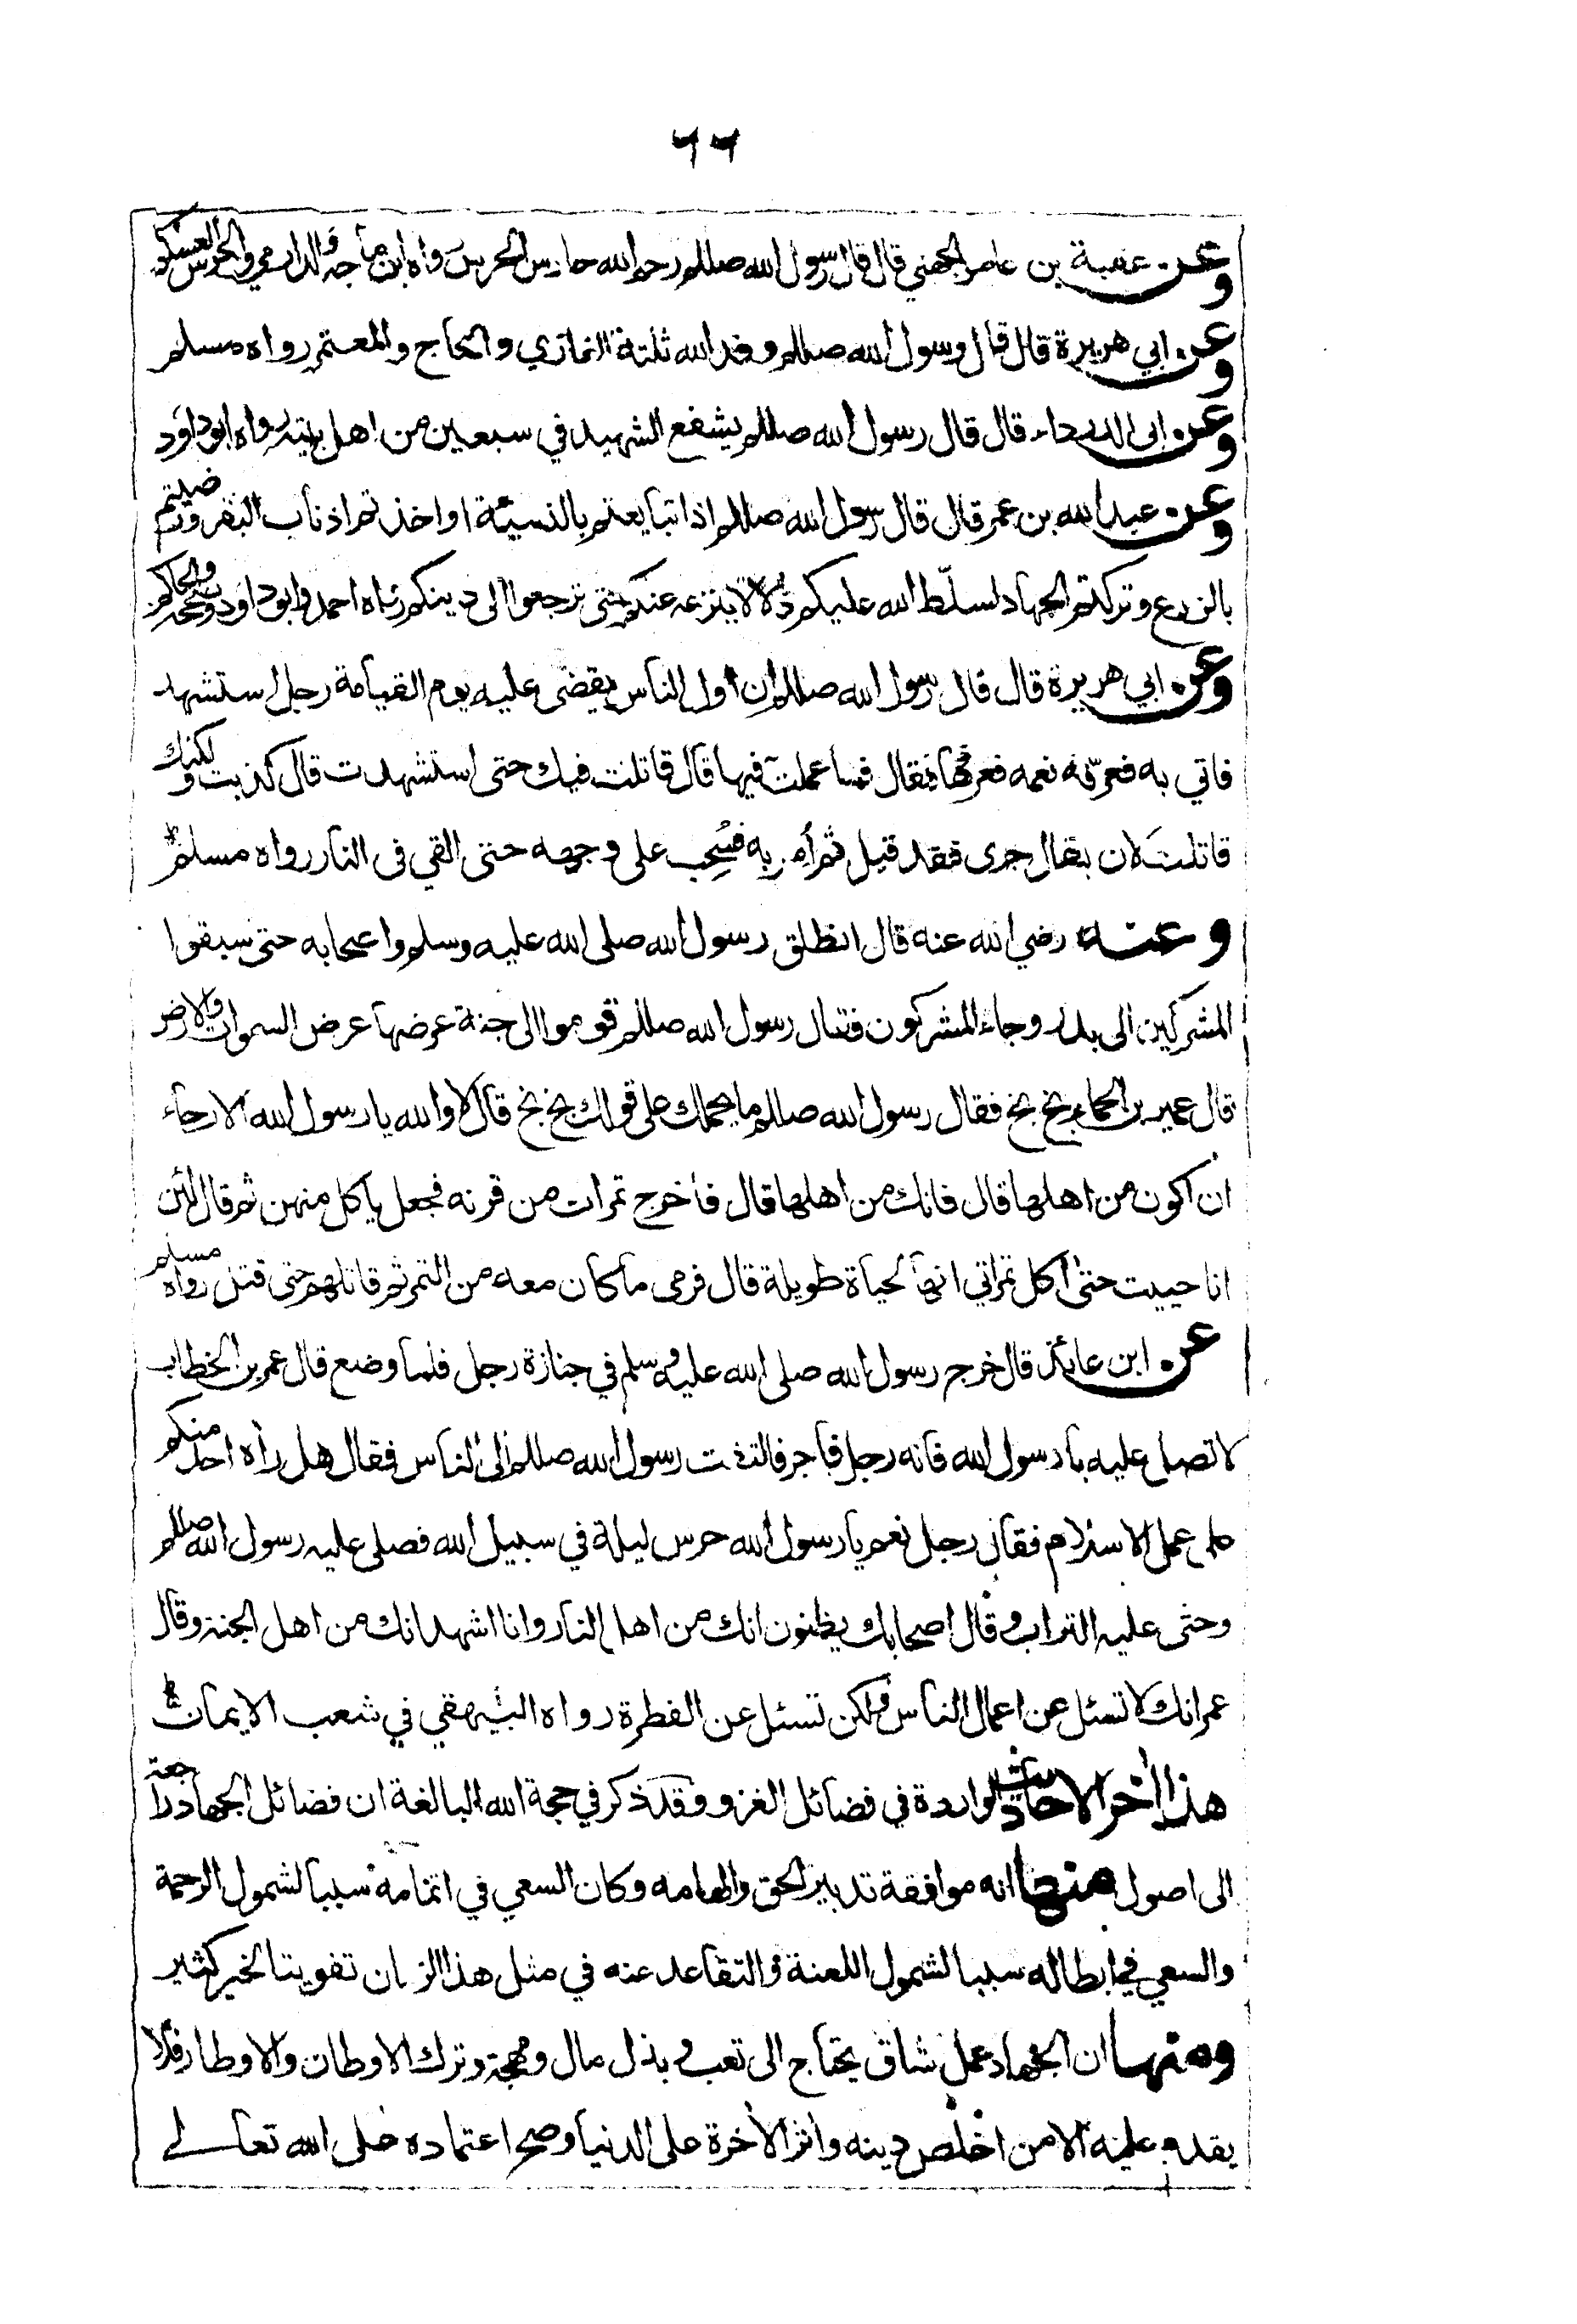 ٦٦
وعن عقبة بن عامر الجهني قال قال رسول الله صللم رحم الله حارس الحرس رواه ابن ماجه والدارمي والحرس العسكر
وعن ابي هريرة قال قال رسول الله صللم وفد الله ثلثة الغازي والحاج والمعتمر رواه مسلم
وعن ابى الدرداء قال قال رسول الله صللم يشفع الشهيد في سبعين من اهل بيته رواه ابوداود
وعن عبد الله بن عمر قال قال رسول الله صللم اذا تبايعتم بالنسيئة او اخذتم اذناب البقر ورضيتم
بالزرع وتركتم الجهاد لسلّط الله عليكم ذلا لا ينزعه عنكم حتى ترجعوا الى دينكم رواه احمد وابوداود وصححه والحاكم
وعن ابي هريرة قال قال رسول الله صللم ان اول الناس يقضى عليه يوم القيامة رجل استشهد
فاتي به فعرّفه نعمه فعرفها فقال فما عملت فيها قال قاتلت فيك حتى استشهدت قال كذبت ولكنك
قاتلت لان يقال جرى فقد قيل ثم أمر به فسُحِب على وجهه حتى القي في النار رواه مسلم
وعنه رضي الله عنه قال انطلق رسول الله صلى الله عليه وسلم واصحابه حتى سبقوا
المشركين الى بدر وجاء المشركون فقال رسول الله صللم قوموا الى جنة عرضها عرض السموات والارض
قال عمير بن الحمام بخ بخ فقال رسول الله صللم ما يحملك على قولك بخ بخ قال لا والله يا رسول الله الا رجاء
ان اكون من اهلها قال فانك من اهلها قال فأخرج تمرات من قرنه فجعل يأكل منهن ثم قال لئن
انا حييت حتى اكل تمراتي انها لحياة طويلة قال فرمى ما كان معه من التمر ثم قاتلهم حتى قتل رواه مسلم
عن ابن عائذ قال خرج رسول الله صلى الله عليه وسلم في جنازة رجل فلما وضع قال عمر بن الخطاب
لا تصل عليه يا رسول الله فانه رجل فاجر فالتفت رسول الله صللم الى الناس فقال هل رأه احد منكم
على عمل الاسلام فقال رجل نعم يا رسول الله حرس ليلة في سبيل الله فصلى عليه رسول الله صللم
وحثى عليه التراب وقال اصحابك يظنون انك من اهل النار وانا اشهد انك من اهل الجنة وقال
عمر انك لا تسئل عن اعمال الناس ولكن تسئل عن الفطرة رواه البيهقي في شعب الايمان
هذا أخر الاحاديث الواردة في فضائل الغزو وقد ذكر في حجة الله البالغة ان فضائل الجهاد راجعة
الى اصول منها انه موافقة تدبير الحق والهامه وكان السعي في اتمامه سببا لشمول الرحمة
والسعي في ابطاله سببا لشمول اللعنة والتقاعد عنه في مثل هذا الزمان تفويتا لخير كثير
ومنها ان الجهاد عمل شاق يحتاج الى تعب وبذل مال ومهجة وترك الاوطان والاوطار فلا
يقدم عليه الا من اخلص دينه وأثر الأخرة على الدنيا وصح اعتماده على الله تعالے